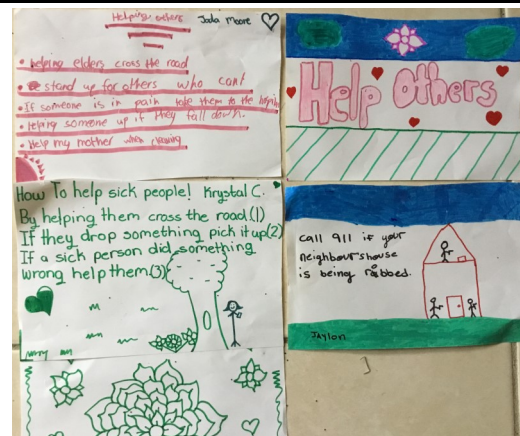 Helping others Jada Moore
• Helping elders cross the road
• stand up for others who cant
• If someone is in pain take them to the
• Helping someone up if they fall down.
• Help my mother when cleaning
Help Others
How To help sick people! Krystal C.
By helping them cross the road(1)
If they drop something pick it up(2)
If a sick person did something
wrong help them(3)
call 911 if your
neighbour'shouse
is being robbed.
Jaylon